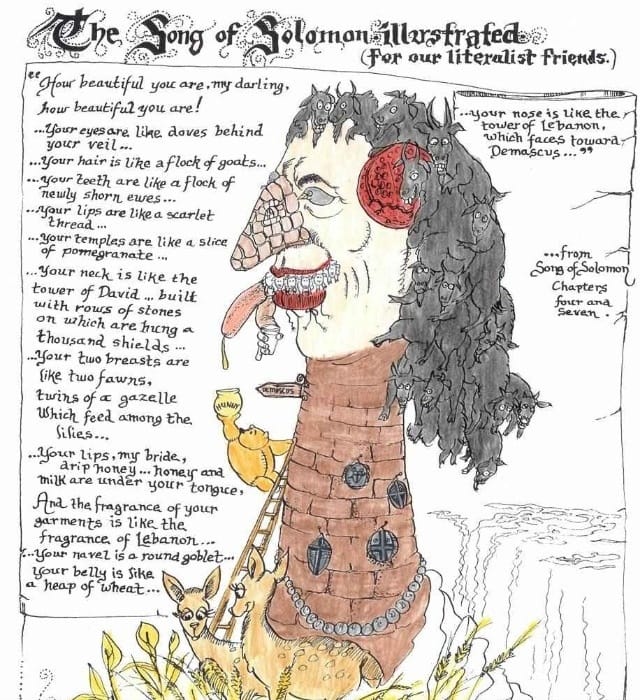 The Song of Solomon illustrated
(for our literalist friends.)
"How beautiful you are, my darling,
how beautiful you are!
...Your eyes are like doves behind
your veil...
...Your hair is like a flock of goats...
...Your teeth are like a flock of
newly shorn ewes...
...Your lips are like a scarlet
thread...
...Your temples are like a slice
of pomegranate...
...Your neck is like the
tower of David... built
with rows of stones
on which are hung a
thousand shields...
...Your two breasts are
like two fawns,
twins of a gazelle
Which feed among the
lilies...
...Your lips, my bride,
drip honey... honey and
milk are under your tongue,
And the fragrance of your
garments is like the
fragrance of Lebanon...
...Your navel is a round goblet...
Your belly is like
a heap of wheat...
...your nose is like the
tower of Lebanon,
which faces toward
Demascus..."
...from
Song of Solomon
Chapters
four and
seven.
HUNNY
DEMASCUS